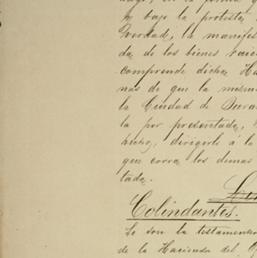 y bajo la protesta
verdad, la manifes
da de los bienes raic
comprende dicha Ha
nas de que la misma
la Ciudad de
la por presentada,
dirigirle á la
que corra los demas
tada.
Colindantes.
Lo son la testamen
de la Hacienda del